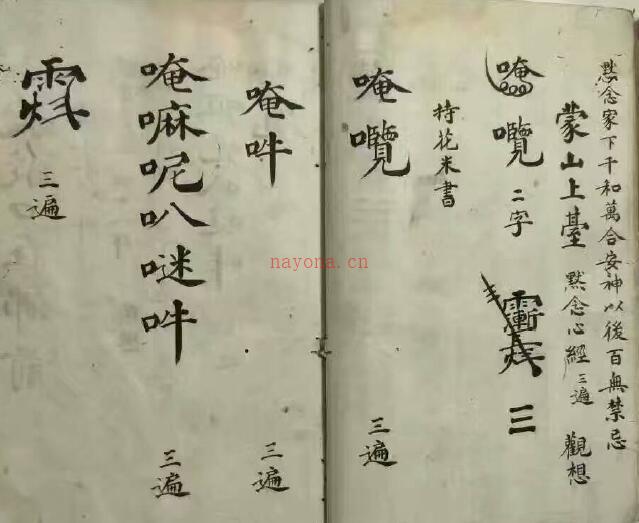 默念家下千和萬合安神以後百無禁忌
蒙山上臺 默念心經三遍 觀想
唵囕二字 三
持花米書
唵囕 三遍
唵吽 三遍
唵嘛呢叭𠺗吽 三遍
三遍
nayona.cn